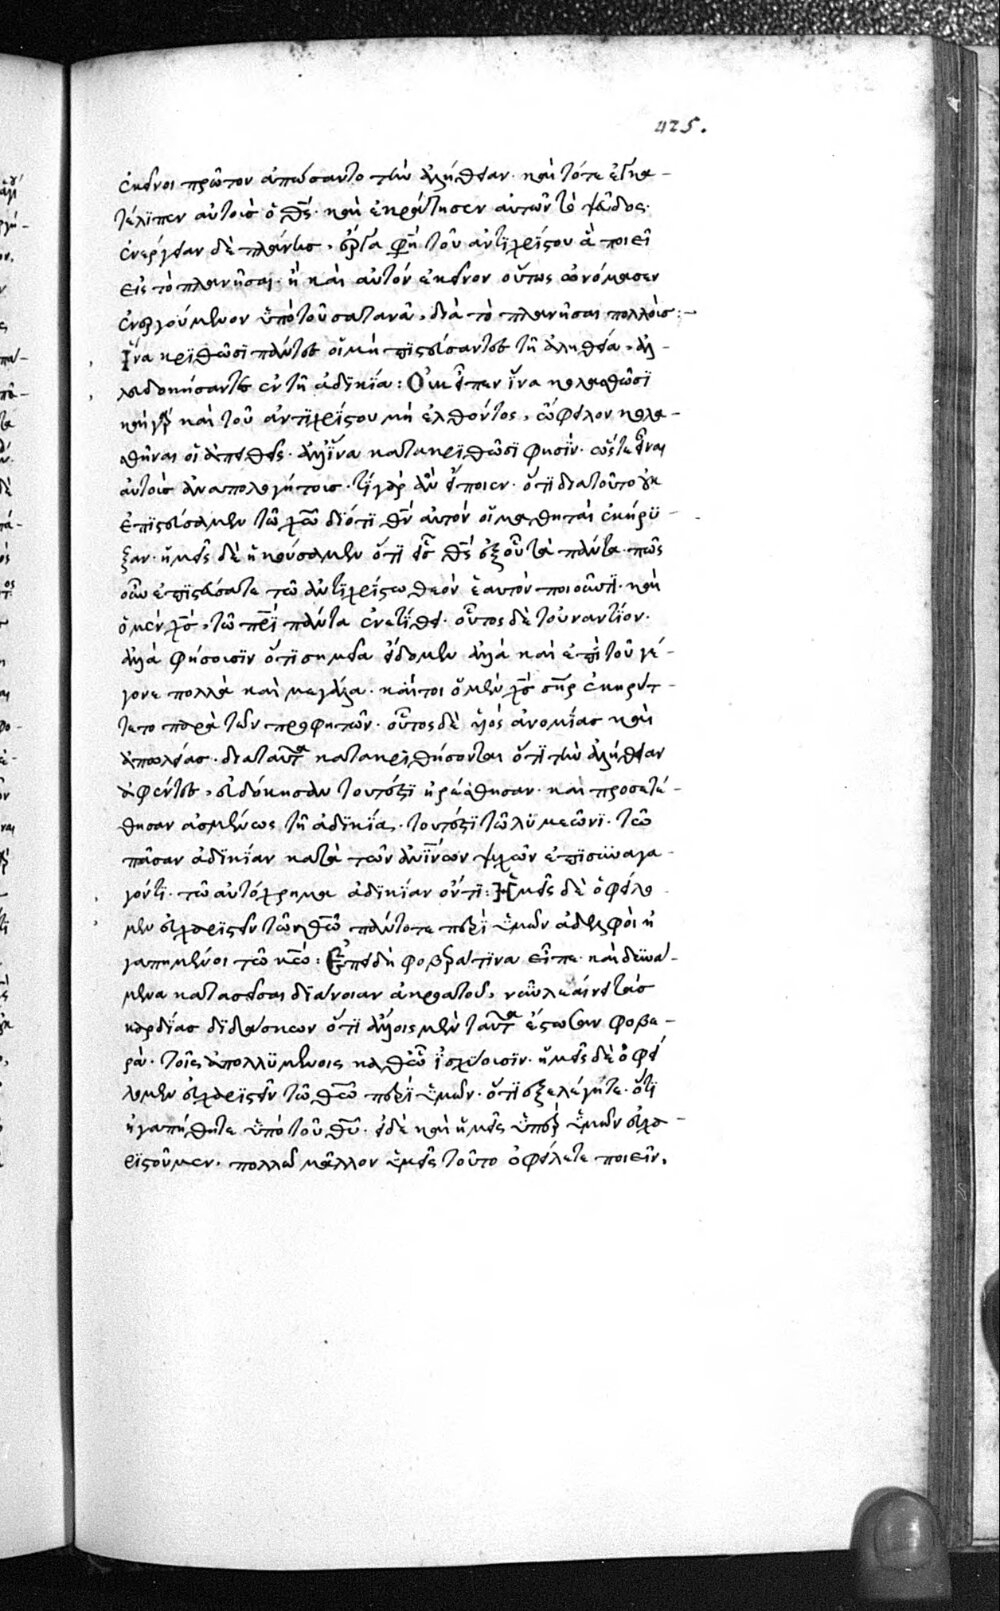 425.
ἐκεῖνοι πρῶτον ἀπώσαντο τὴν ἀλήθειαν· καὶ τότε ἐγκα-
τέλιπεν αὐτοὺς ὁ θς· καὶ ἐκράτησεν αὐτῶν τὸ ψεῦδος·
ἐνέργειαν δὲ πλάνης, ἔργα φησὶ τοῦ ἀντιχρίστου ἃ ποιεῖ
εἰς τὸ πλανῆσαι· ἢ καὶ αὐτὸν ἐκεῖνον οὕτως ὠνόμασεν
ἐνεργούμενον ὑπὸ τοῦ σατανᾶ, διὰ τὸ πλανῆσαι πολλούς:-
Ἵνα κριθῶσι πάντες οἱ μὴ πιστεύσαντες τῇ ἀληθείᾳ, ἀλλ-
εὐδοκήσαντες ἐν τῇ ἀδικίᾳ: Οὐκ εἶπεν ἵνα κολασθῶσι
καὶ γὰρ καὶ τοῦ ἀντιχρίστου μὴ ἐλθόντος, ὤφειλον κολα-
σθῆναι οἱ ἀπειθεῖς· ἀλλ' ἵνα κατακριθῶσι φησίν· ὥστε εἶναι
αὐτοὺς ἀναπολογήτους· τί γὰρ ἂν εἴποιεν· ὅτι διατοῦτο οὐκ
ἐπιστεύσαμεν τῷ χῶ διότι θν αὐτὸν οἱ μαθηταὶ ἐκήρυ-
ξαν· ἡμεῖς δὲ ἠκούσαμεν ὅτι εἷς θς ἐξ οὗ τὰ πάντα· πῶς
οὖν ἐπιστεύσατε τῷ ἀντιχρίστῳ θεὸν ἑαυτὸν ποιοῦντι· καὶ
ὁ μὲν χς, τῷ πρὶ πάντα ἀνετίθει· οὗτος δὲ τοὐναντίον·
ἀλλὰ φήσουσιν ὅτι σημεῖα εἴδομεν ἀλλὰ καὶ ἐπὶ τοῦ γέ-
γονε πολλὰ καὶ μεγάλα· καίτοι ὁ μὲν χς σηρ ἐκηρύτ-
τετο παρὰ τῶν προφητῶν· οὗτος δὲ υἱὸς ἀνομίας καὶ
ἀπωλείας· διαταῦτα κατακριθήσονται ὅτι τὴν ἀλήθειαν
ἀφέντες, εὐδόκησαν τουτέστι ἠρέσθησαν· καὶ προσετέ-
θησαν ἀσμένως τῇ ἀδικίᾳ, τουτέστι τῷ λυμεῶνι· τῷ
πᾶσαν ἀδικίαν κατὰ τῶν ἀνίνων ψυχῶν ἐπισυναγα-
γόντι· τῷ αὐτόχρημα ἀδικίαν ὄντι: Ἡμεῖς δὲ ὀφείλο
μεν εὐχαριστεῖν τῷ θῶ πάντοτε περὶ ὑμῶν ἀδελφοὶ ἠ
γαπημένοι τῷ κῶ: Ἐπειδὴ φοβερά τινα εἶπε· καὶ δυνά-
μενα κατασεῖσαι διάνοιαν ἀκροατοῦ, νῦν λεαίνει τὰς
καρδίας διδάσκων ὅτι ἄλλοις μὲν ταῦτα ἔστωσαν φοβε-
ρά· τοῖς ἀπολλυμένοις καθ' ὧν ἰσχύουσιν· ἡμεῖς δὲ ὀφεί
λομεν εὐχαριστεῖν τῷ θῶ περὶ ὑμῶν· ὅτι ἐξελέγητε· ὅτι
ἠγαπήθητε ὑπὸ τοῦ θυ· εἰ δὲ καὶ ἡμεῖς ὑπὲρ ὑμῶν εὐχα-
ριστοῦμεν, πολλῷ μᾶλλον ὑμεῖς τοῦτο ὀφείλετε ποιεῖν,